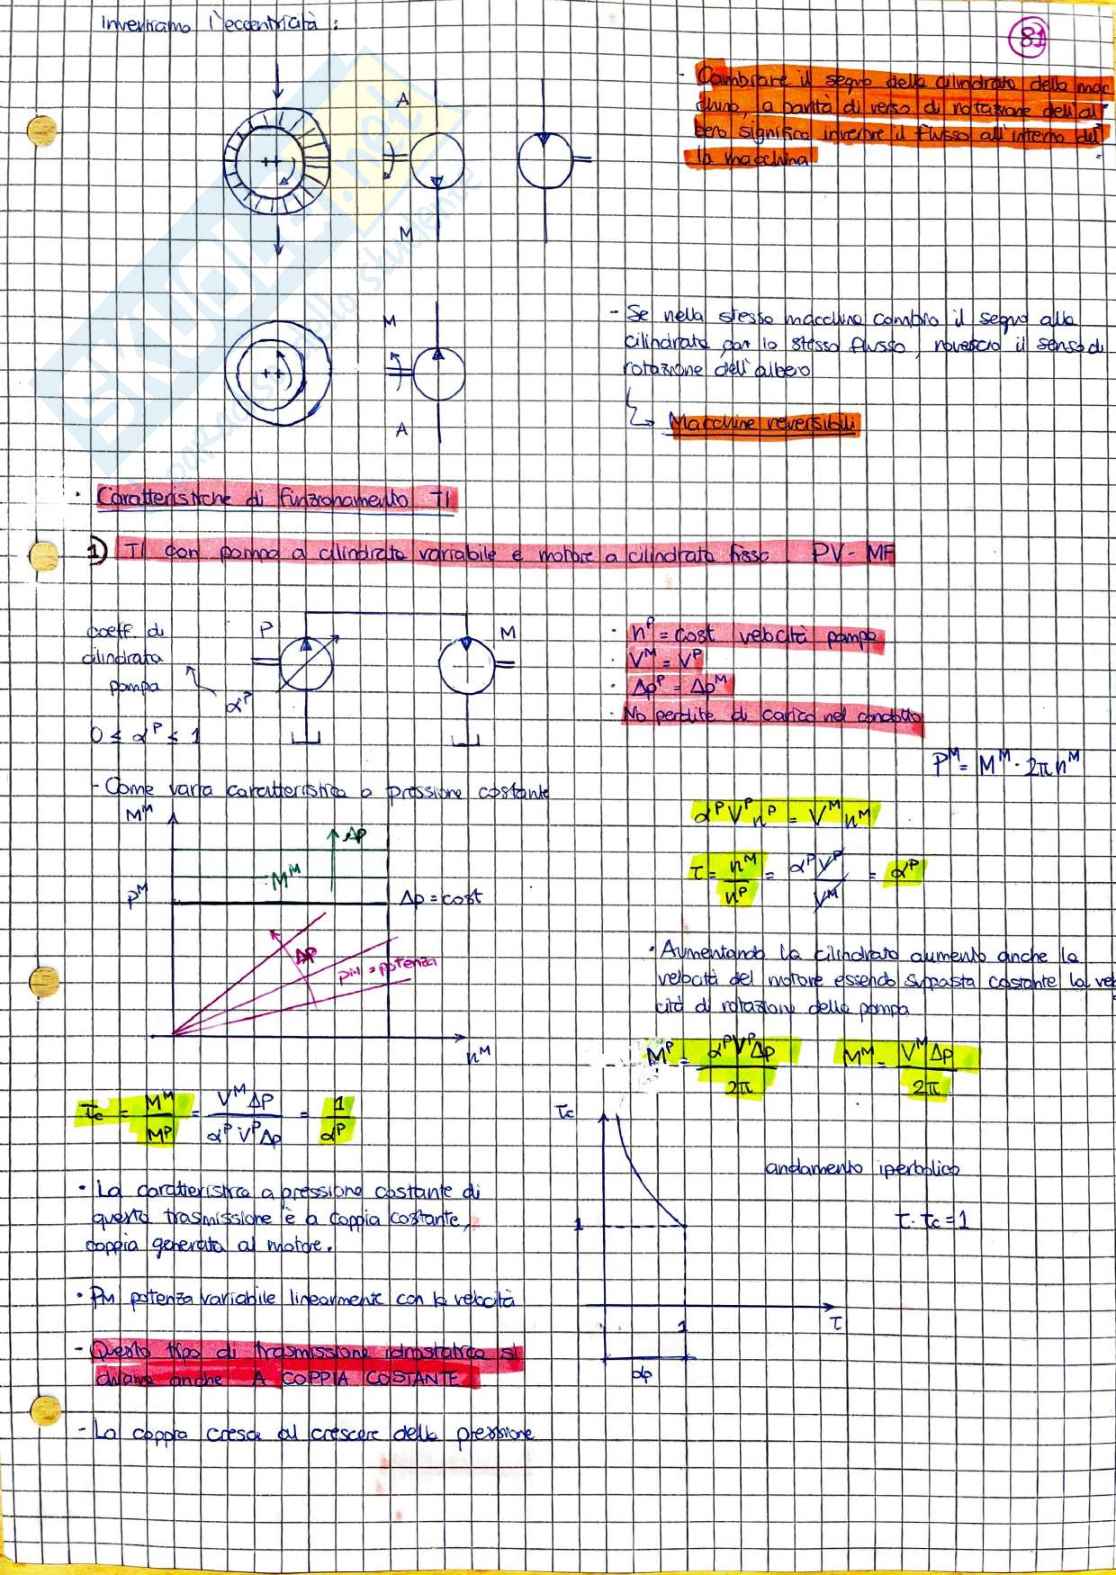 Invertiamo l'eccentricità :
81
- Cambiare il segno della cilindrata della mac
china, a parità di verso di rotazione dell'al
bero significa invertire il flusso all'interno del
la macchina
A
M
- Se nella stessa macchina cambio il segno alla
cilindrata per lo stesso flusso, rovescio il senso di
rotazione dell'albero
→ Macchine reversibili
M
A
· Caratteristiche di funzionamento TI
1) TI con pompa a cilindrata variabile e motore a cilindrata fissa PV-MF
coeff di
cilindrata
pompa
αᴾ
0 ≤ αᴾ ≤ 1
P
M
· nᴾ = cost velocità pompa
· Vᴹ = Vᴾ
· Δpᴾ = Δpᴹ
· No perdite di carico nel condotto
Pᴹ = Mᴹ · 2π nᴹ
- Come varia caratteristica a pressione costante
Mᴹ
Δp
Mᴹ
Pᴹ
Δp = cost
Δp
PM = potenza
nᴹ
αᴾVᴾnᴾ = Vᴹnᴹ
τ = nᴹ/nᴾ = αᴾVᴾ/Vᴹ = αᴾ
· Aumentando la cilindrata aumento anche la
velocità del motore essendo supposta costante la velo
cità di rotazione della pompa
Mᴾ = αᴾVᴾΔp/2π Mᴹ = VᴹΔp/2π
τc = Mᴹ/Mᴾ = VᴹΔp/αᴾVᴾΔp = 1/αᴾ
· La caratteristica a pressione costante di
questa trasmissione è a coppia costante,
coppia generata al motore.
· PM potenza variabile linearmente con la velocità
- Questo tipo di trasmissione idrostatica si
chiama anche A COPPIA COSTANTE
- La coppia cresce al crescere della pressione
τc
1
andamento iperbolico
τ · τc = 1
τ
1
αp
SKUOLA.net